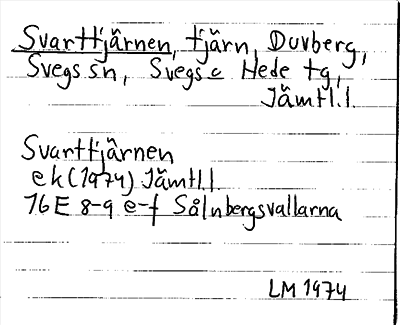 Svarttjärnen, tjärn, Duvberg,
Svegs sn, Svegs o Hede tg,
Jämtl.l.
Svarttjärnen
ek(1974) Jämtl.l.
16E 8-9 e-f Sålnbergsvallarna
LM 1974